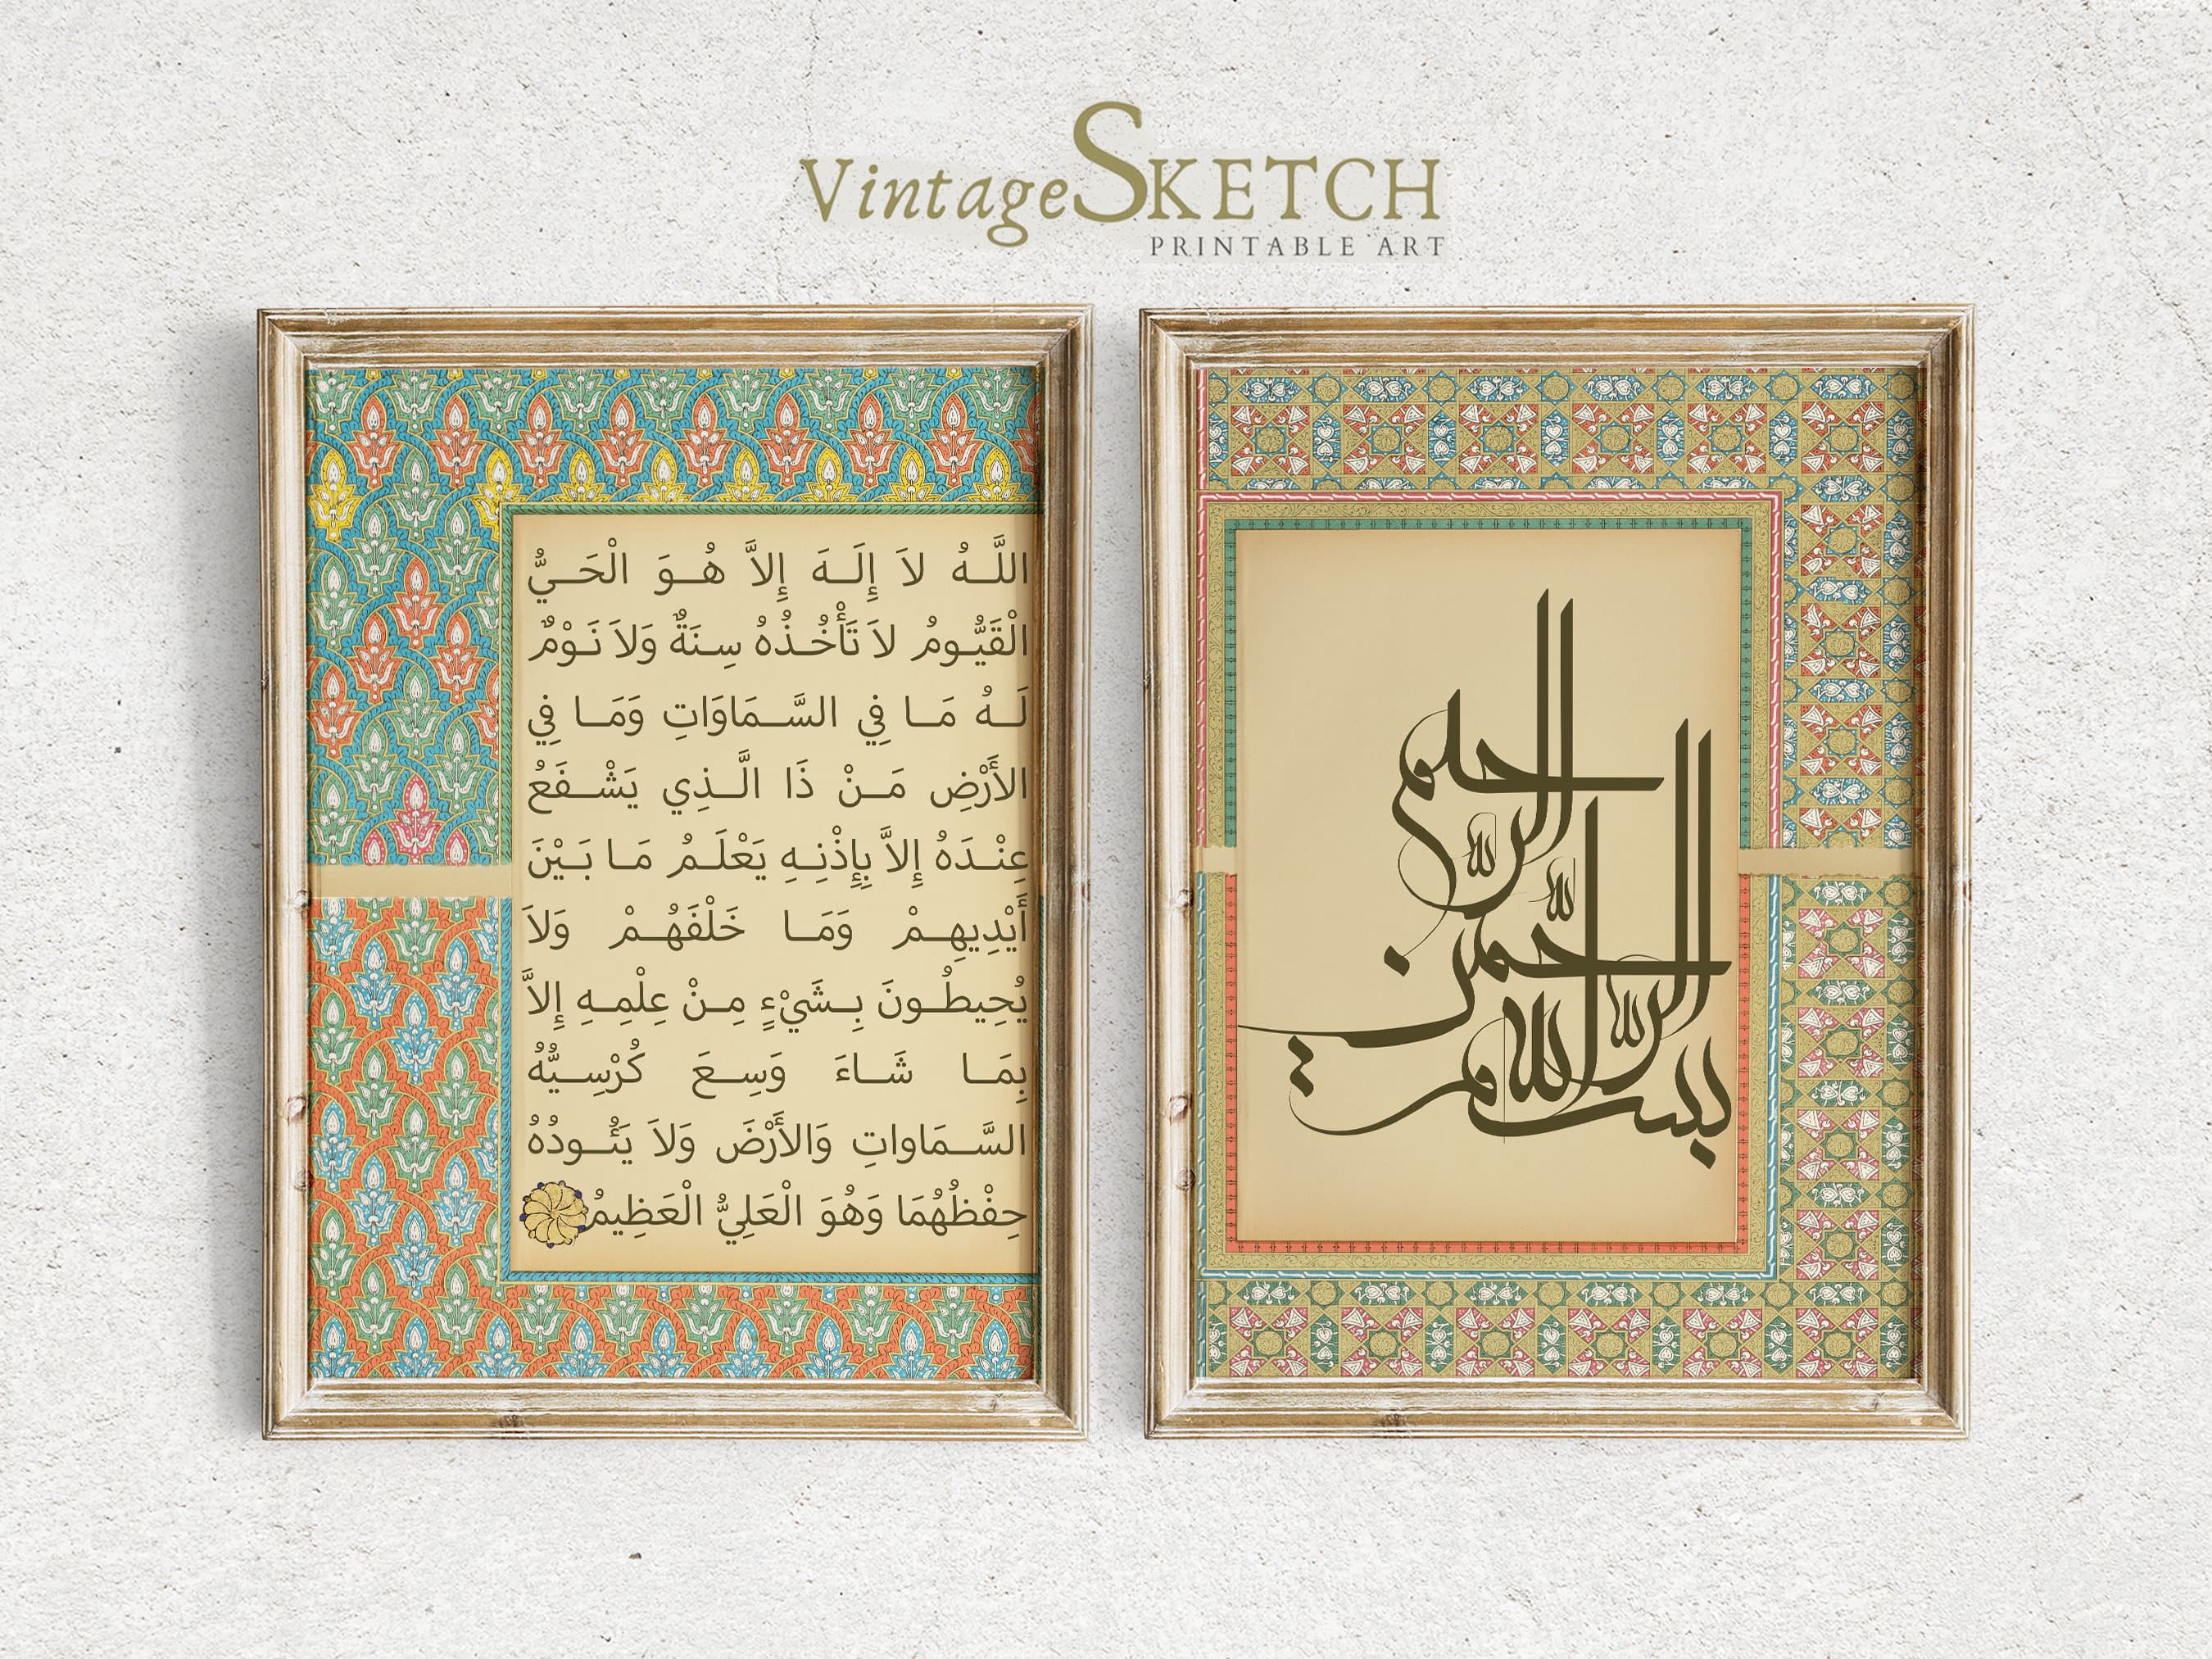 VintageSKETCH
PRINTABLE ART
اللَّهُ لاَ إِلَهَ إِلاَّ هُوَ الْحَيُّ
الْقَيُّومُ لاَ تَأْخُذُهُ سِنَةٌ وَلاَ نَوْمٌ
لَهُ مَا فِي السَّمَاوَاتِ وَمَا فِي
الأَرْضِ مَنْ ذَا الَّذِي يَشْفَعُ
عِنْدَهُ إِلاَّ بِإِذْنِهِ يَعْلَمُ مَا بَيْنَ
أَيْدِيهِمْ وَمَا خَلْفَهُمْ وَلاَ
يُحِيطُونَ بِشَيْءٍ مِنْ عِلْمِهِ إِلاَّ
بِمَا شَاءَ وَسِعَ كُرْسِيُّهُ
السَّمَاواتِ وَالأَرْضَ وَلاَ يَئُودُهُ
حِفْظُهُمَا وَهُوَ الْعَلِيُّ الْعَظِيمُ
بسم الله الرحمن الرحيم